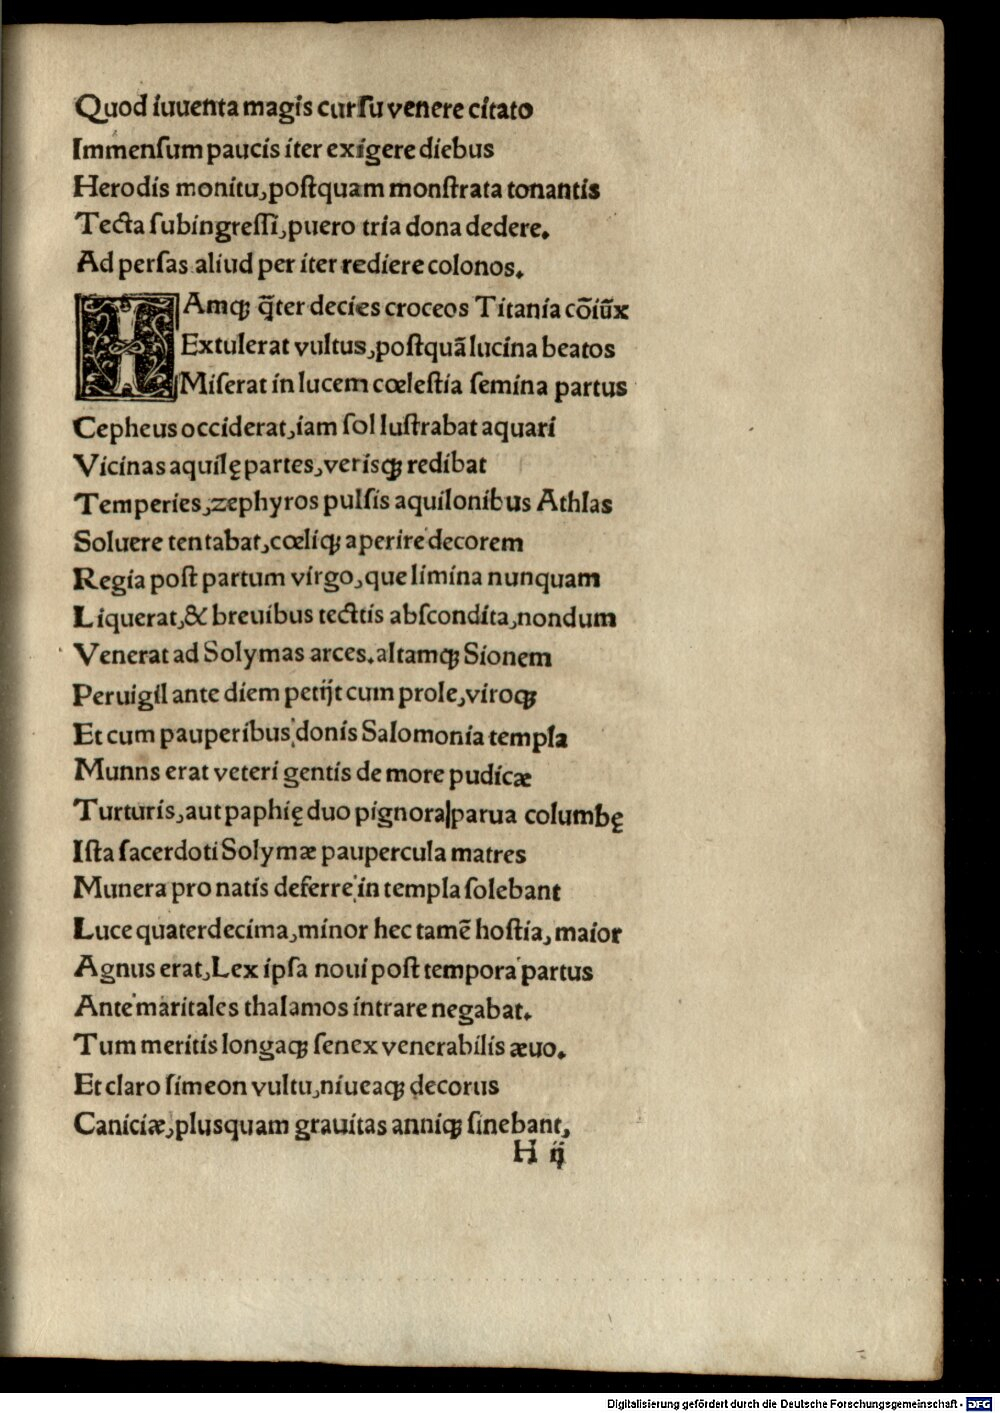 Quod iuuenta magis curſu venere citato
Immenſum paucis iter exigere diebus
Herodis monitu,poſtquam monſtrata tonantis
Tecta ſubingreſſi,puero tria dona dedere.
Ad perſas aliud per iter rediere colonos.
HAmq; q̄ter decies croceos Titania cōiūx
Extulerat vultus,poſtquā lucina beatos
Miſerat in lucem cœleſtia ſemina partus
Cepheus occiderat,iam ſol luſtrabat aquari
Vicinas aquilę partes,verisq; redibat
Temperies,zephyros pulſis aquilonibus Athlas
Soluere tentabat,cœliq; aperire decorem
Regia poſt partum virgo,que limina nunquam
Liquerat,& breuibus tecttis abſcondita,nondum
Venerat ad Solymas arces.altamq; Sionem
Peruigil ante diem petijt cum prole,viroq;
Et cum pauperibus donis Salomonia templa
Munns erat veteri gentis de more pudicæ
Turturis,aut paphię duo pignora|parua columbę
Iſta ſacerdoti Solymæ paupercula matres
Munera pro natis deferre in templa ſolebant
Luce quaterdecima,minor hec tamē hoſtia,maior
Agnus erat,Lex ipſa noui poſt tempora partus
Ante maritales thalamos intrare negabat.
Tum meritis longaq; ſenex venerabilis æuo.
Et claro ſimeon vultu,niueaq; decorus
Caniciæ,plusquam grauitas anniq; ſinebant,
H ij
Digitalisierung gefördert durch die Deutsche Forschungsgemeinschaft - DFG